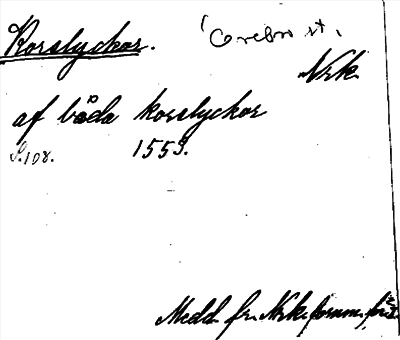 Korslyckor. (Örebro st.
Nrk.
af båda korslyckor
S. 108. 1553.
Medd. fr. Nrk. fornm. för. 2